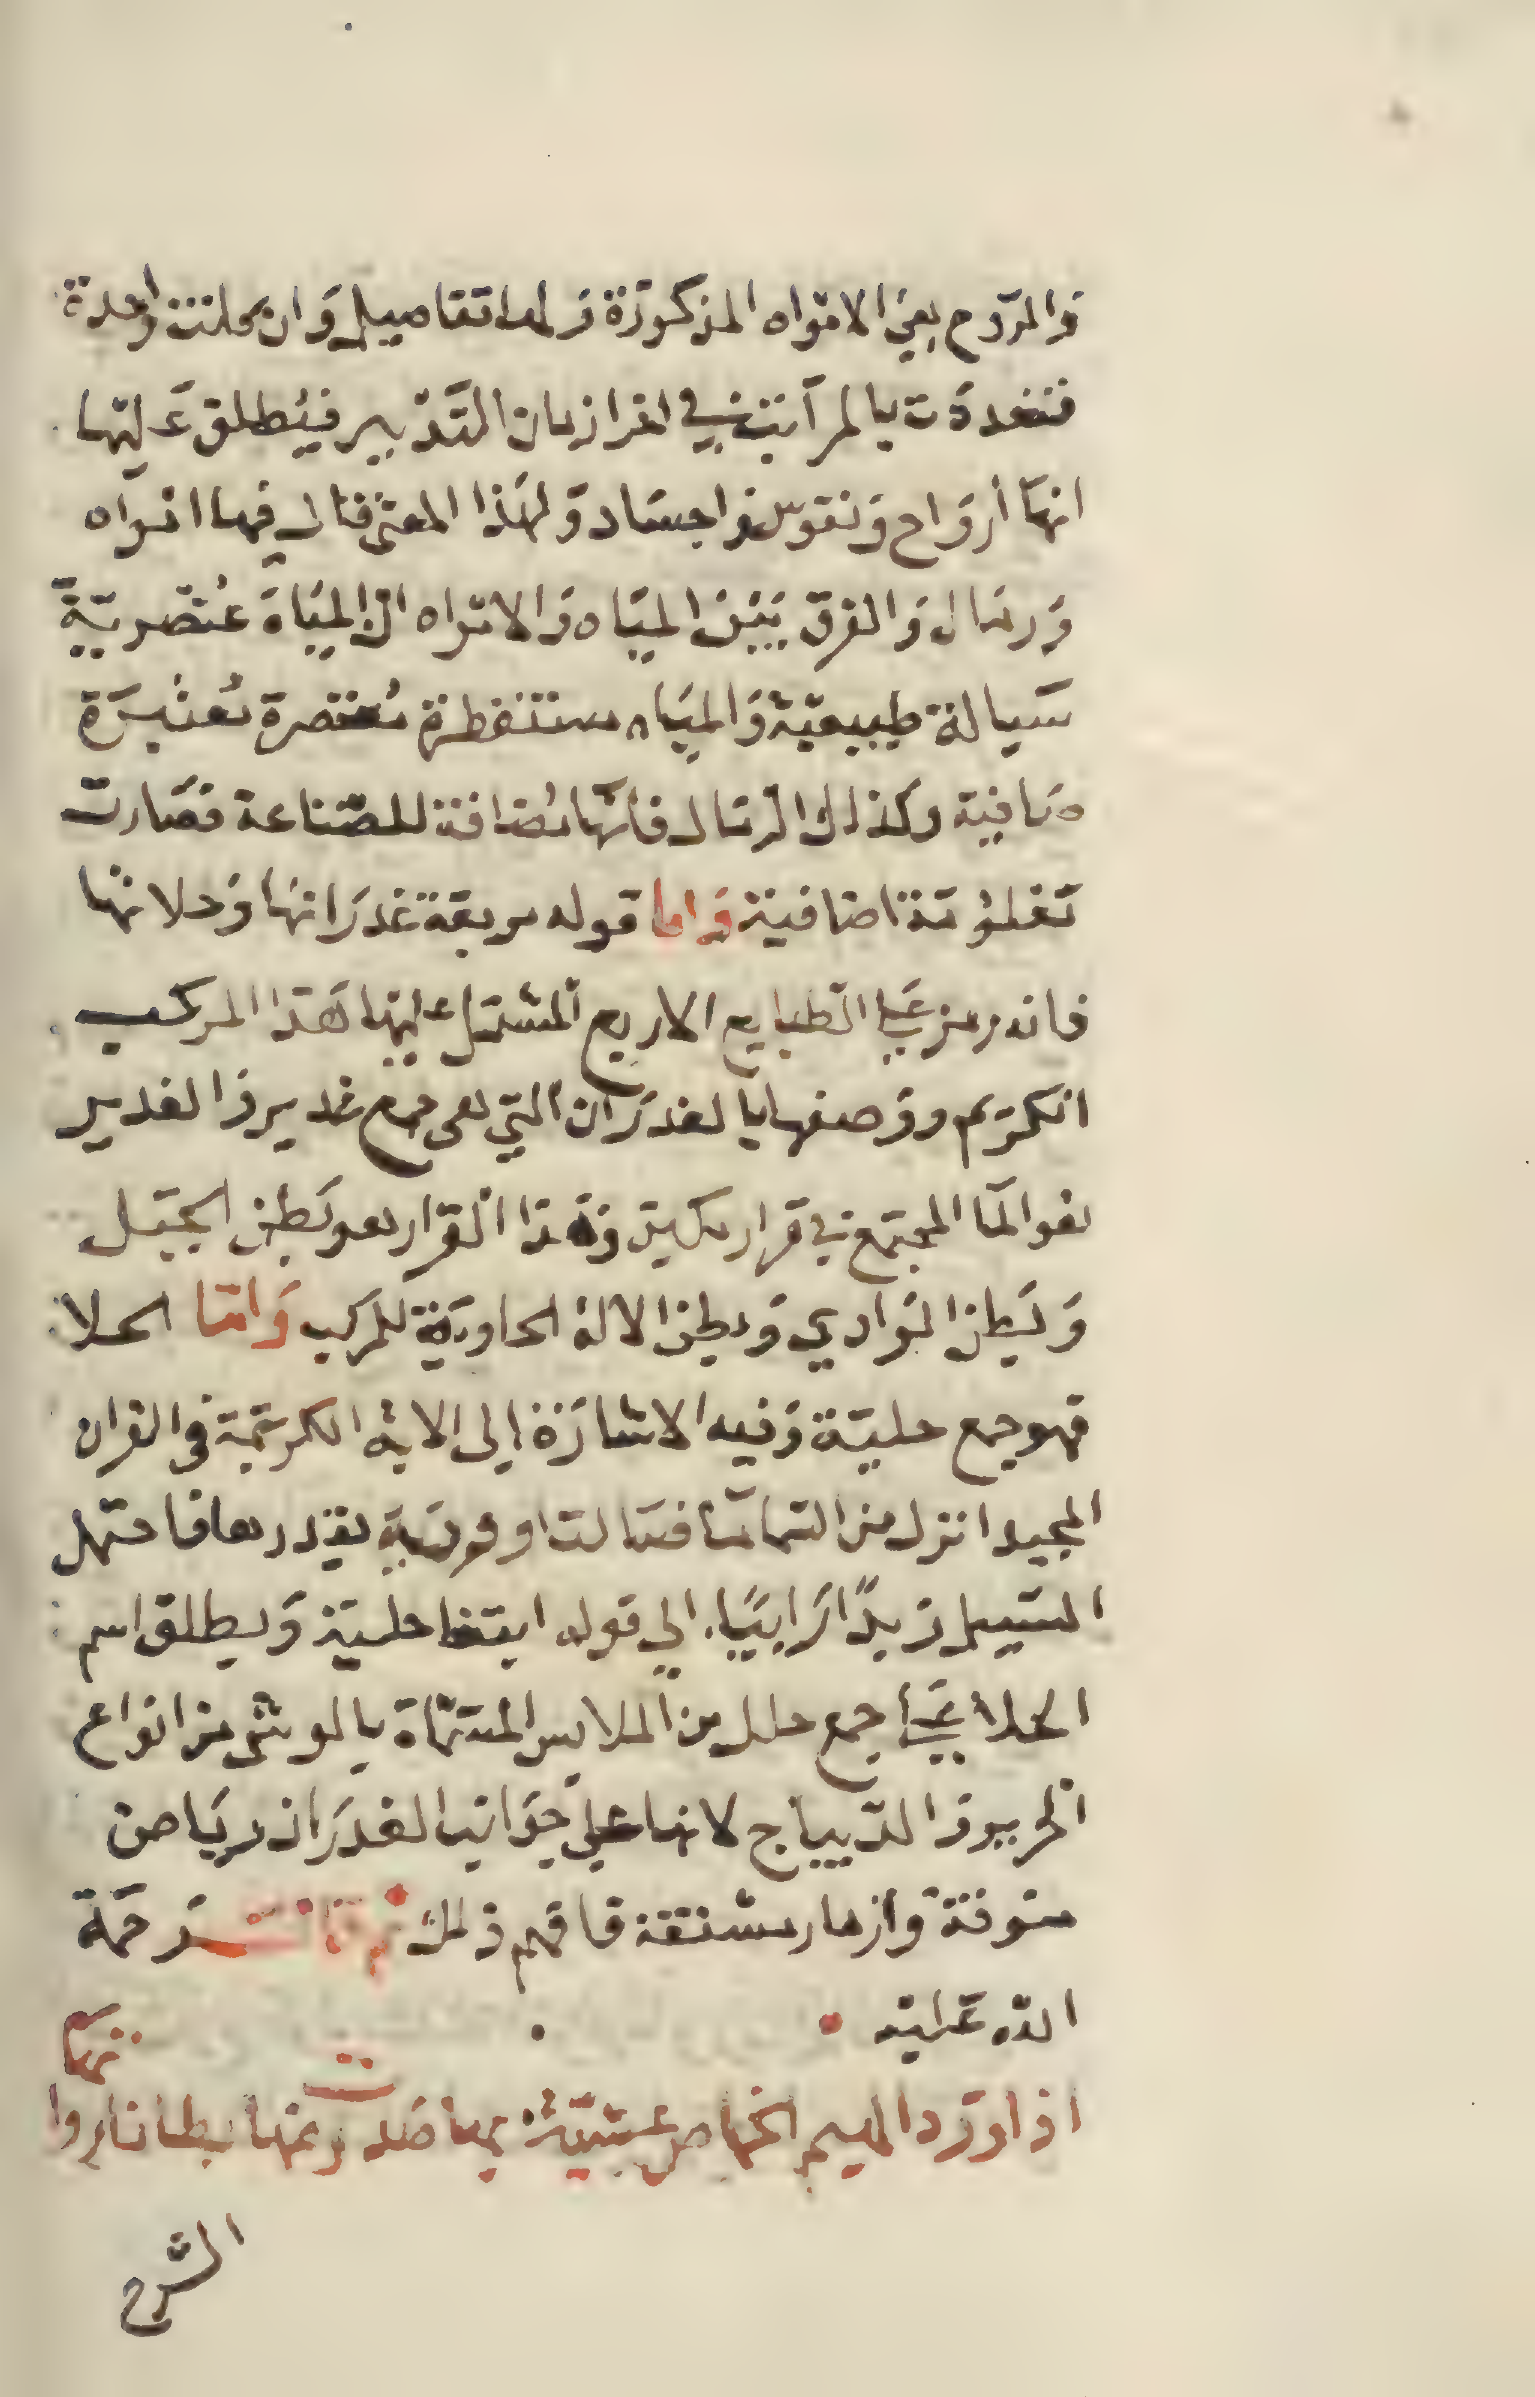 والروح بعين الامواه المذكورة ولها تفاصيل وان كانت واحدة
فتعددت بالمراتب في افراز بيان التدبير فيطلق عليها
انها أرواح ونفوس واجساد ولهذا المعنى قال فيها امواه
ورمال والفرق بين المياه والامواه ان المياه عنصرية
سيالة طبيعية والمياه مستقطرة معتصرة معتبرة
صافية وكذلك الرمال فانها مضافة للصناعة فصارت
صافية واما قوله مريعة غدرانها وحلاتها
فانه رمز على الطبايع الاربع المشتمل عليها هذا المركب
الكريم ووصفها بالغدران التي هي جمع غدير والغدير
هو الما المجتمع في قرار مكين وهذا القرار هو بطن الجبل
وبطن الوادي وبطن الالة الحاوية للمركب واما الحلا
فهو جمع حلية وفيه الاشارة الى الاية الكريمة في القران
المجيد انزل من السما ما فسالت اودية بقدرها فاحتمل
السيل زبدا رابيا الى قوله ابتغا حلية ويطلق اسم
الحلا على جمع حلل من الملابس المسماة بالوشى من انواع
الحرير والديباج لانها على جوانب الغدران رياض
وازهار مشتقة فافهم ذلك ثم قال رحمة
الله عليه
اذا ورد الهيم الخماص عشية بها صدرت عنها بطانا روا
الشرح